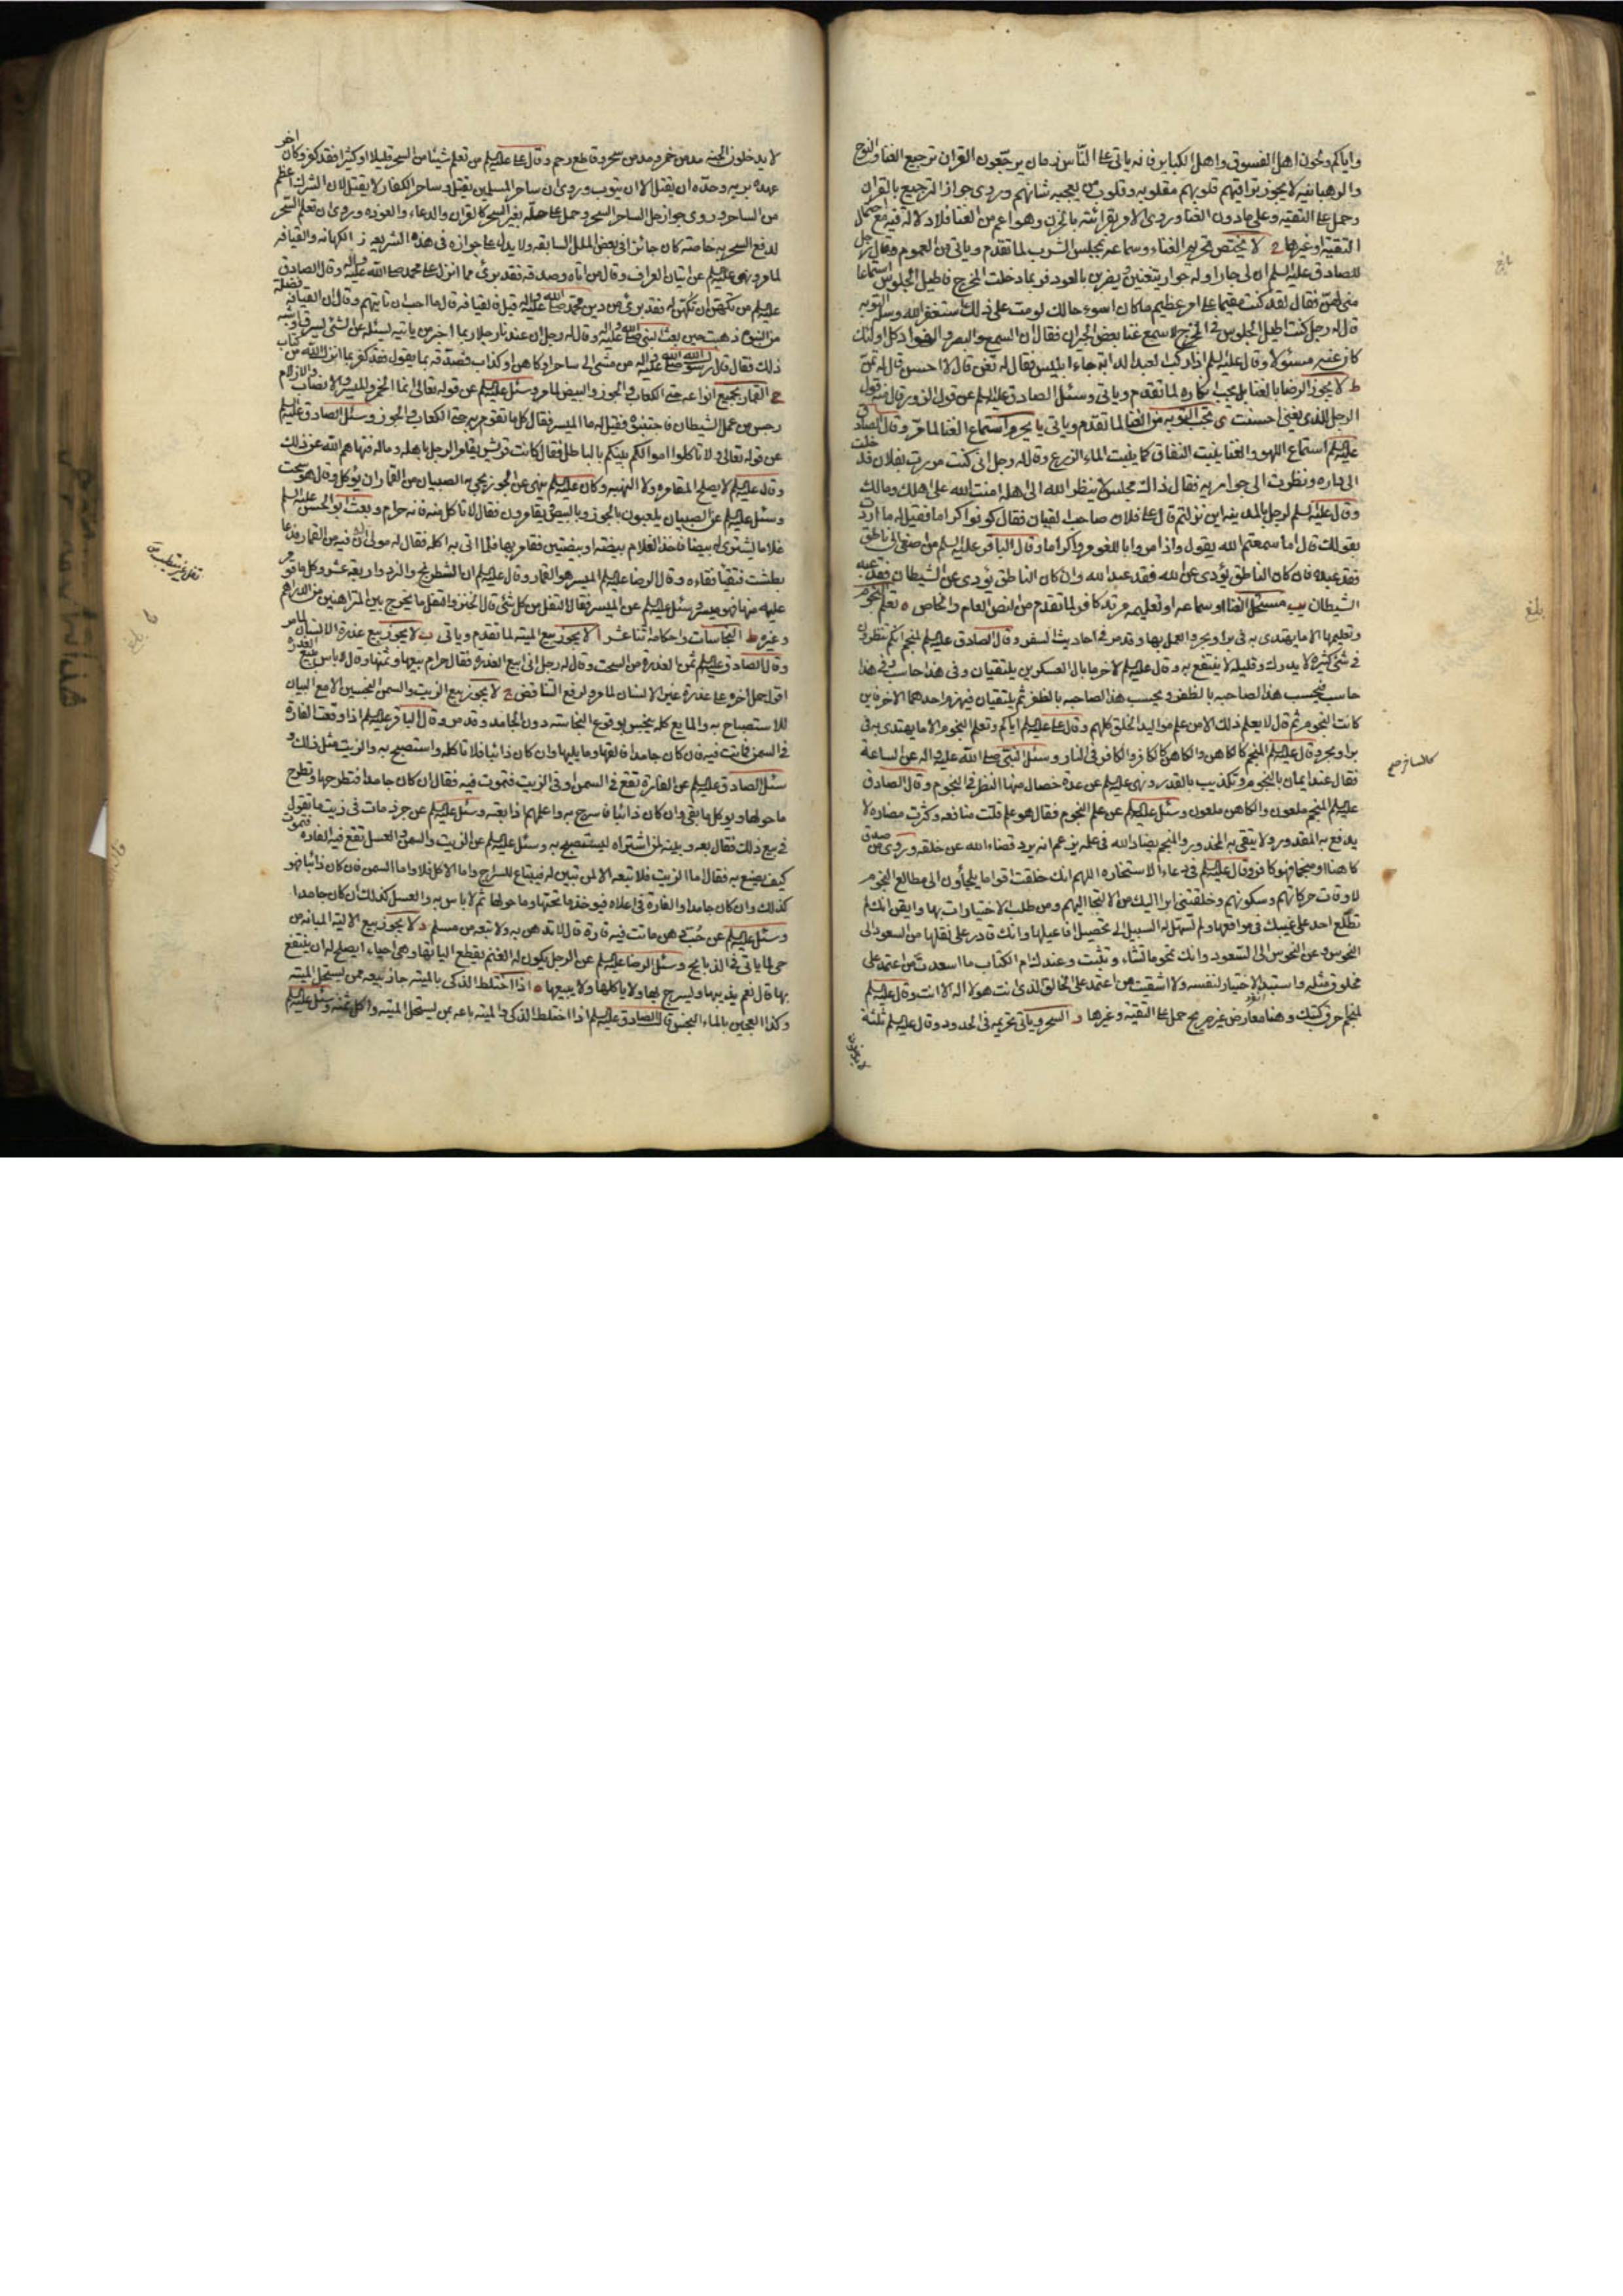 واياكم ولحون اهل الفسوق واهل الكباير فانه ياتي على الناس زمان يرجعون القران ترجيع الغنا والنوح
والرهبانيه لا يجوز تراقيهم قلوبهم مقلوبه وقلوب من يعجبه شانهم وروى جواز الترجيع بالقران
وحمل على التقيه وعلى مادون الغنا وروى الامر بقرائته بالحزن وهو اعم من الغنا فلا دلالة فيه مع احتمال
التقية وغيرها ح لا يختص تحريم الغناء وسماعه بمجلس الشرب لما تقدم وياتي من العموم وقال رجل
للصادق عليه السلم ان لي جارا وله جوار يتغنين ويضربن بالعود فربما دخلت المخرج فاطيل الجلوس استماعا
مني لهن فقال لقد كنت مقيما على امر عظيم ما كان اسوء حالك لو مت على ذلك استغفر الله وسله التوبه
قال له رجل كنت اطيل الجلوس في المخرج لاسمع غنا بعض الجيران فقال ان السمع والبصر والفؤاد كل اولئك
كان عنه مسئولا وقال عليه السلم اذا ركب العبد الدابه جاء ابليس فقال له تغن فان قال لا احسن قال له تمن
ط لا يجوز الرضا بالغنا بل يجب انكاره لما تقدم وياتي وسئل الصادق عليه السلم عن قول الزور قال منه قول
الرجل للذي يغني احسنت ى تجب التوبه من الغنا لما تقدم وياتي يا يحرم استماع الغنا لما مر وقال الصادق
عليه السلم استماع اللهو والغنا ينبت النفاق كما ينبت الماء الزرع وقال له رجل اني كنت مررت بفلان فدخلت
الى داره ونظرت الى جواريه فقال ذاك مجلس لا ينظر الله الى اهله امنت الله على اهلك ومالك
وقال عليه السلم لرجل بالمدينه اين نزلتم قال على فلان صاحب القيان فقال كونوا كراما فقيل له ما اردت
بقولك قال اما سمعتم الله يقول واذا مروا باللغو مروا كراما وقال الباقر عليه السلم من اصغى الى ناطق
فقد عبده فان كان الناطق يؤدي عن الله فقد عبد الله وان كان الناطق يؤدي عن الشيطان فقد عبد
الشيطان يب مستحل الغنا او سماعه او تعليمه مرتد كافر لما تقدم من النص العام والخاص ه تعلم النجوم
وتعليمها الا ما يهتدى به في بر او بحر والعمل بها وقد مر في احاديث السفر وقال الصادق عليه السلم لمنجم انكم تنظرون
في شئ كثيره لا يدرك وقليله لا ينتفع به وقال عليه السلم لاخر ما بال العسكرين يلتقيان وفي هذا حاسب وفي هذا
حاسب فيحسب هذا لصاحبه بالظفر ويحسب هذا لصاحبه بالظفر ثم يلتقيان فيهزم احدهما الاخر فاين
كانت النجوم ثم قال لا يعلم ذلك الا من علم مواليد الخلق كلهم وقال على عليه السلم اياكم وتعلم النجوم الا ما يهتدى به في
بر او بحر وقال عليه السلم المنجم كالكاهن والكاهن كالكافر والكافر في النار وسئل النبي صلى الله عليه واله عن الساعة
فقال عند ايمان بالنجوم وتكذيب بالقدر ونهى عليه السلم عن عدة خصال منها النظر في النجوم وقال الصادق
عليه السلم المنجم ملعون والكاهن ملعون وسئل عليه السلم عن علم النجوم فقال هو علم قلت منافعه وكثرت مضاره لا
يدفع به المقدور ولا يتقى به المحذور والمنجم يضاد الله في علمه بزعمه انه يرد قضاء الله عن خلقه وروى من صدق
كاهنا او منجما فهو كافر وقال عليه السلم في دعاء الاستخاره اللهم انك خلقت اقواما يلجأون الى مطالع النجوم
لاوقات حركاتهم وسكونهم وخلقتني ابرا اليك من الالتجا اليهم ومن طلب الاختيارات بها وايقن انك لم
تطلع احد على غيبك في مواقعها ولم تسهل له السبيل الى تحصيل افاعيلها وانك قادر على نقلها من السعود الى
النحوس وعن النحوس الى السعود وانك تمحو ما تشاء وتثبت وعندك ام الكتاب ما اسعدت من اعتمد على
مخلوق مثله واستبد الاختيار لنفسه ولا اشقيت من اعتمد على الخالق الذي انت هو لا اله الا انت وقال عليه السلم
لمنجم احرق كتبك وهنا معارض غير صريح حمل على التقيه وغيرها و السحر وياتي تحريمه في الحدود وقال عليه السلم ثلثة
بلغ
كالسافر صح
لا يدخلون الجنه مدمن خمر ومدمن سحر وقاطع رحم وقال على عليه السلم من تعلم شيئا من السحر قليلا او كثيرا فقد كفر وكان اخر
عهده بربه وحده ان يقتل الا ان يتوب وروى ان ساحر المسلمين يقتل وساحر الكفار لا يقتل لان الشرك اعظم
من الساحر وروى جواز حل الساحر السحر وحمل على حله بغير السحر كالقران والدعاء والعوذه وروى ان تعلم السحر
لدفع السحر به خاصته كان جائزا في بعض الملل السابقه ولا يدل على جوازه في هذه الشريعه ز الكهانه والقيافه
لما مر ونهى عليه السلم عن اتيان العراف وقال من اتاه وصدقه فقد برئ مما انزل على محمد صلى الله عليه واله وقال الصادق
عليه السلم من تكهن او تكهن له فقد برئ من دين محمد صلى الله عليه واله قيل فالقيافه قال ما احب ان تاتيهم وقال ان القيافه فضلة
من النبوه ذهبت حين بعث النبي صلى الله عليه واله وقال له رجل ان عندنا رجلا ربما اخبر من ياتيه ليسئله عن الشئ يسرق او شبه
ذلك فقال قال رسول الله صلى الله عليه واله من مشى الى ساحر او كاهن او كذاب فصدقه بما يقول فقد كفر بما انزل الله من كتاب
ح القمار بجميع انواعه حتى الكعاب والجوز والبيض لما مر وسئل عليه السلم عن قوله تعالى انما الخمر والميسر والانصاب والازلام
رجس من عمل الشيطان فاجتنبوه فقيل له ما الميسر فقال كل ما تقومر به حتى الكعاب والجوز وسئل الصادق عليه السلم
عن قوله تعالى ولا تاكلوا اموالكم بينكم بالباطل فقال كانت قريش يقامر الرجل باهله وماله فنهاهم الله عن ذلك
وقال عليه السلم لا يصلح المقامره ولا النهبه وكان عليه السلم ينهى عن الجوز يجئ به الصبيان من القمار ان يؤكل وقال هو سحت
وسئل عليه السلم عن الصبيان يلعبون بالجوز والبيض ويقامرون فقال لا تاكل منه فانه حرام وبعث ابو الحسن عليه السلم
غلاما ليشتري له بيضا فاخذ الغلام بيضه او بيضتين فقامر بها فلما اتى به اكله فقال له مولى ان فيه من القمار فدعا
بطشت فتقيأ فقاءه وقال الرضا عليه السلم الميسر هو القمار وقال عليه السلم ان الشطرنج والنرد واربعة عشر وكل ما قومر
عليه منها فهو ميسر وسئل عليه السلم عن الميسر فقال الثقل من كل شئ قال الخبز والثقل ما يخرج بين المتراهنين من الدراهم
وغيره ط النجاسات واحكامه اثنا عشر ا لا يجوز بيع الميته لما تقدم وياتي ب لا يجوز بيع عذرة الانسان لما مر
وقال الصادق عليه السلم ثمن العذره من السحت وقال له رجل اني ابيع العذره فقال حرام بيعها وثمنها وقال لا باس ببيع العذره
اقول حمل اخره على عذرة غير الانسان لما مر ولرفع التناقض ج لا يجوز بيع الزيت والسمن النجسين الا مع البيان
للاستصباح به والمايع كله ينجس بوقوع النجاسته دون الجامد وقد مر وقال الباقر عليه السلم اذا وقعت الفارة
في السمن فماتت فيه فان كان جامدا فالقها وما يليها وان كان ذائبا فلا تاكله واستصبح به والزيت مثل ذلك و
سئل الصادق عليه السلم عن الفارة تقع في السمن او في الزيت فتموت فيه فقال ان كان جامدا فتطرحها وتطرح
ما حولها ويوكل ما بقي وان كان ذائبا فاسرج به واعلمهم اذا بعته وسئل عليه السلم عن جرذ مات في زيت ما تقول
في بيع ذلك فقال بعه وبينه لمن اشتراه ليستصبح به وسئل عليه السلم عن الزيت والسمن والعسل تقع فيه الفاره فتموت
كيف يصنع به فقال اما الزيت فلا تبعه الا لمن تبين له فيبتاع للسراج واما الاكل فلا واما السمن فان كان ذائبا فهو
كذلك وان كان جامدا والفارة في اعلاه فيوخذ ما تحتها وما حولها ثم لا باس به والعسل كذلك ان كان جامدا
وسئل عليه السلم عن حب دهن ماتت فيه فارة قال لا تدهن به ولا تبعه من مسلم د لا يجوز بيع الاليه المبانه من
حي لما ياتي في الذبايح وسئل الرضا عليه السلم عن الرجل يكون له الغنم يقطع الياتها وهي احياء ايصلح له ان ينتفع
بها قال نعم يذيبها ويسرج بها ولا ياكلها ولا يبيعها ه اذا اختلط الذكى بالميته جاز بيعه ممن يستحل الميته
وكذا العجين بالماء النجس وقال الصادق عليه السلم اذا اختلط الذكى والميته باعه ممن يستحل الميته واكل ثمنه وسئل عليه السلم
بلغ